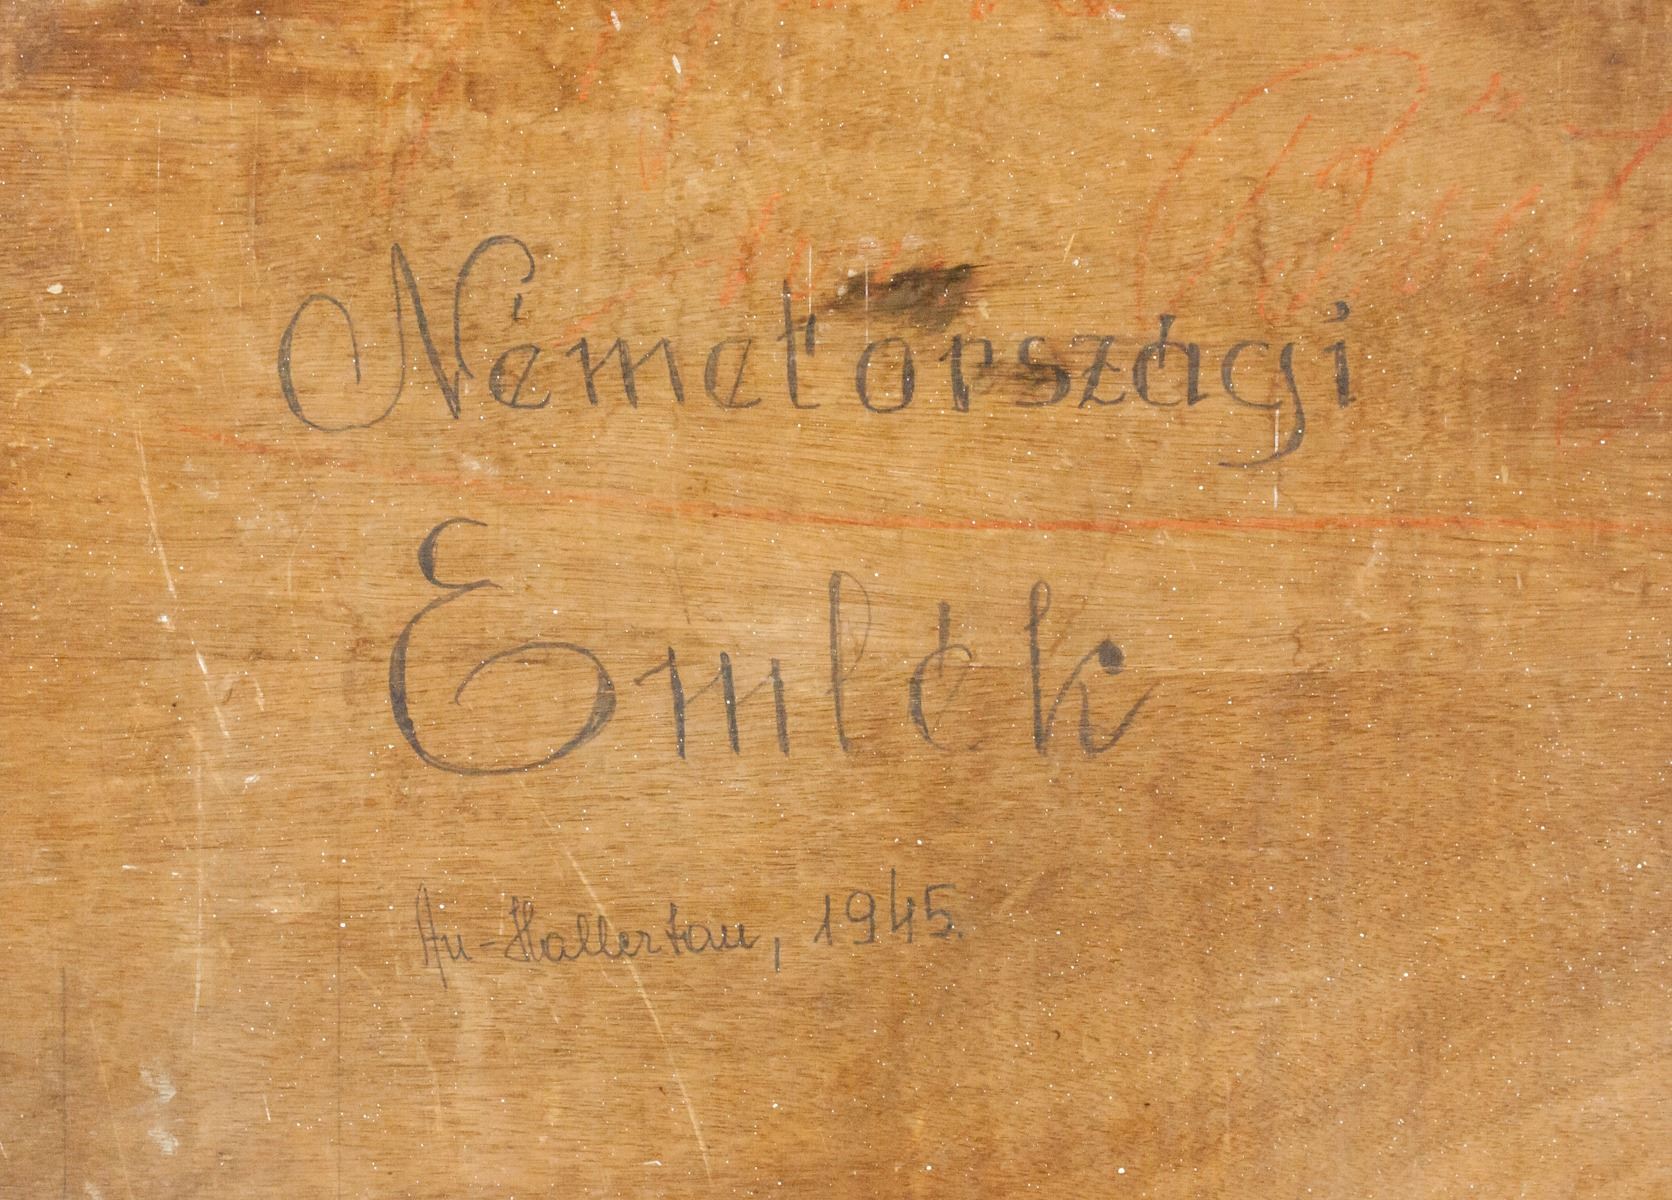 Németországi
Emlék
Au-Hallertau, 1945.